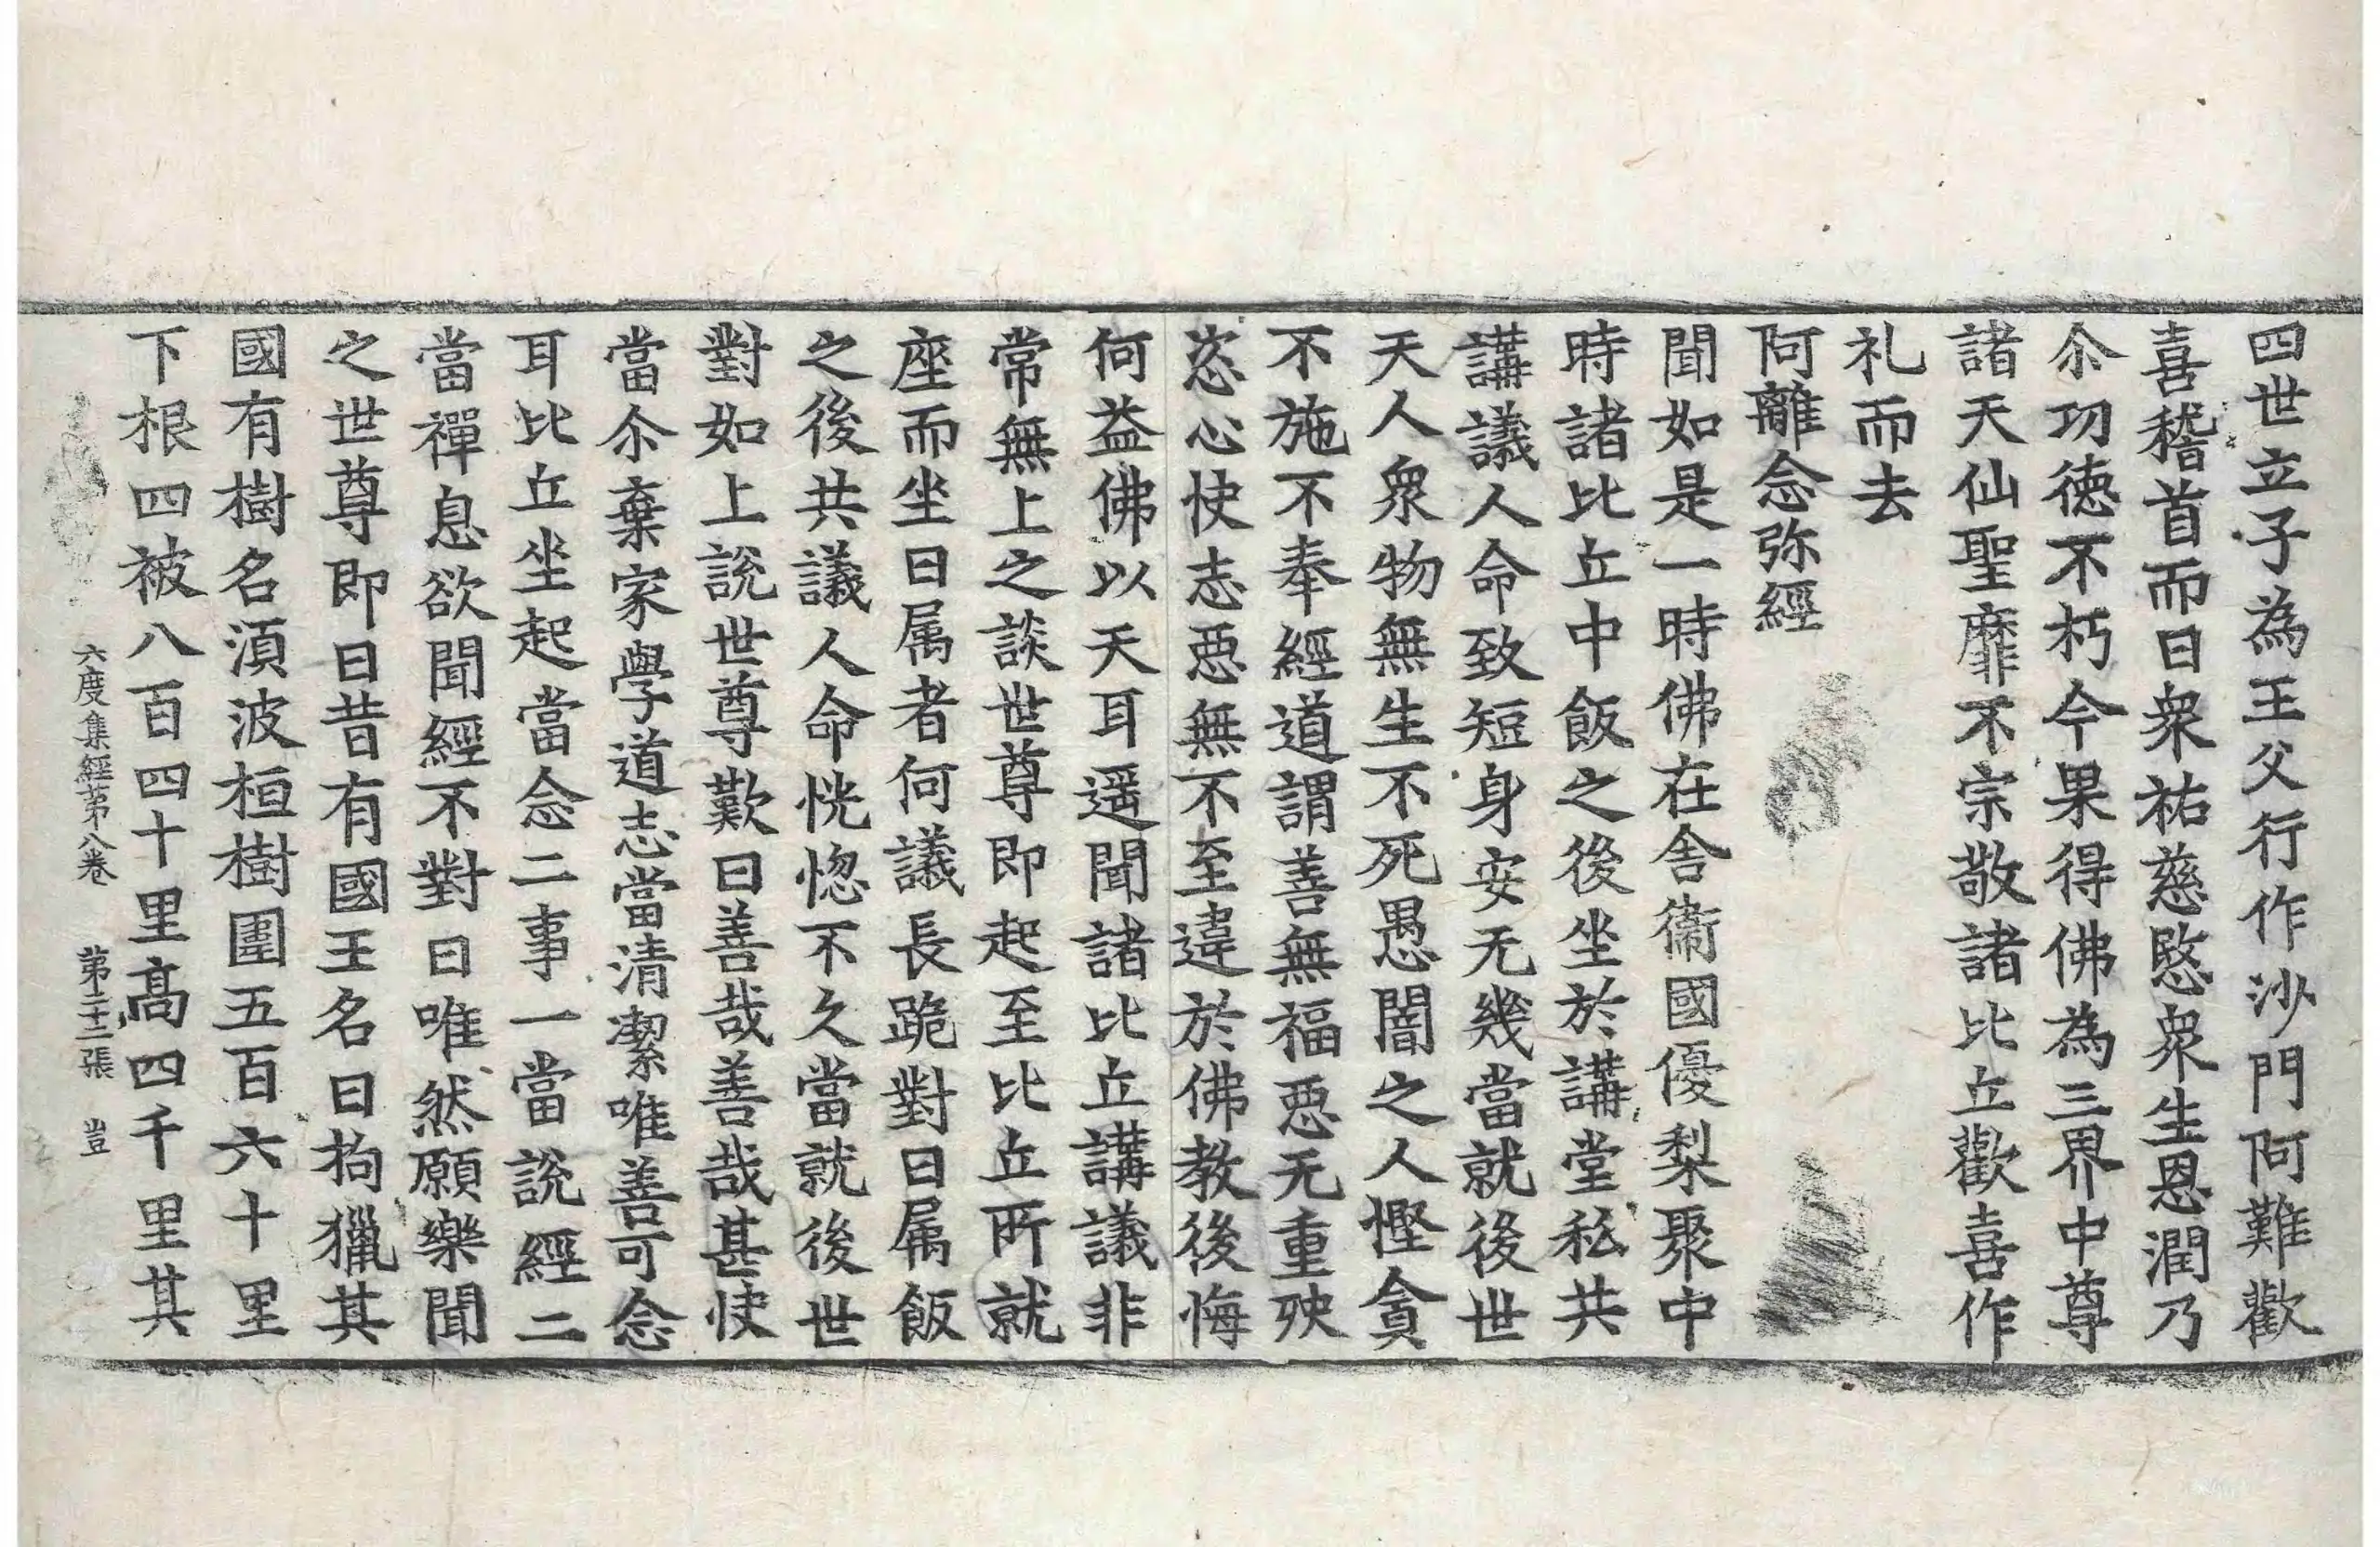 四世立子為王父行作沙門阿難歡
喜稽首而曰衆祐慈愍衆生恩潤乃
尒功德不朽今果得佛為三界中尊
諸天仙聖靡不宗敬諸比丘歡喜作
礼而去
阿離念弥經
聞如是一時佛在舍衛國優梨聚中
時諸比丘中飯之後坐於講堂私共
講議人命致短身安无幾當就後世
天人衆物無生不死愚闇之人慳貪
不施不奉經道謂善無福惡无重殃
恣心快志惡無不至違於佛教後悔
何益佛以天耳遥聞諸比丘講議非
常無上之談世尊即起至比丘所就
座而坐曰属者何議長跪對曰屬飯
之後共議人命恍惚不久當就後世
對如上說世尊歎曰善哉善哉甚快
當尒棄家學道志當清潔唯善可念
耳比丘坐起當念二事一當說經二
當禪息欲聞經不對曰唯然願樂聞
之世尊即曰昔有國王名曰拘獵其
國有樹名湏波桓樹圍五百六十里
下根四被八百四十里髙四千里其
六度集經第八卷 第二十二張 豈